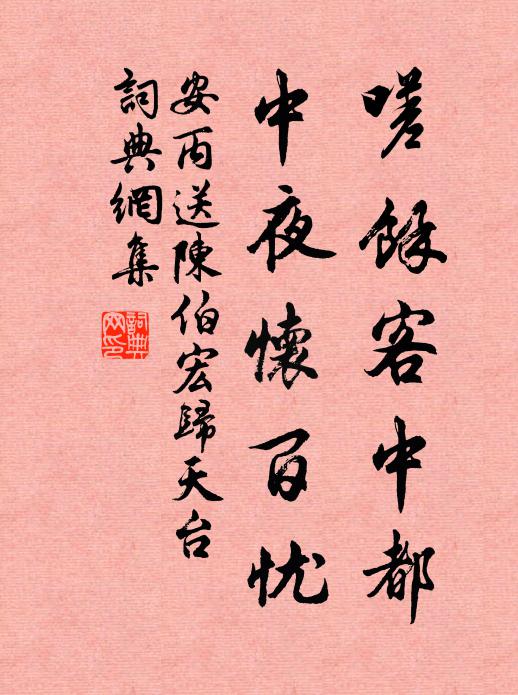 嗟餘客中都
中夜懷百忧
安丙送陳伯宏歸天台
詞典網集
詞典網印